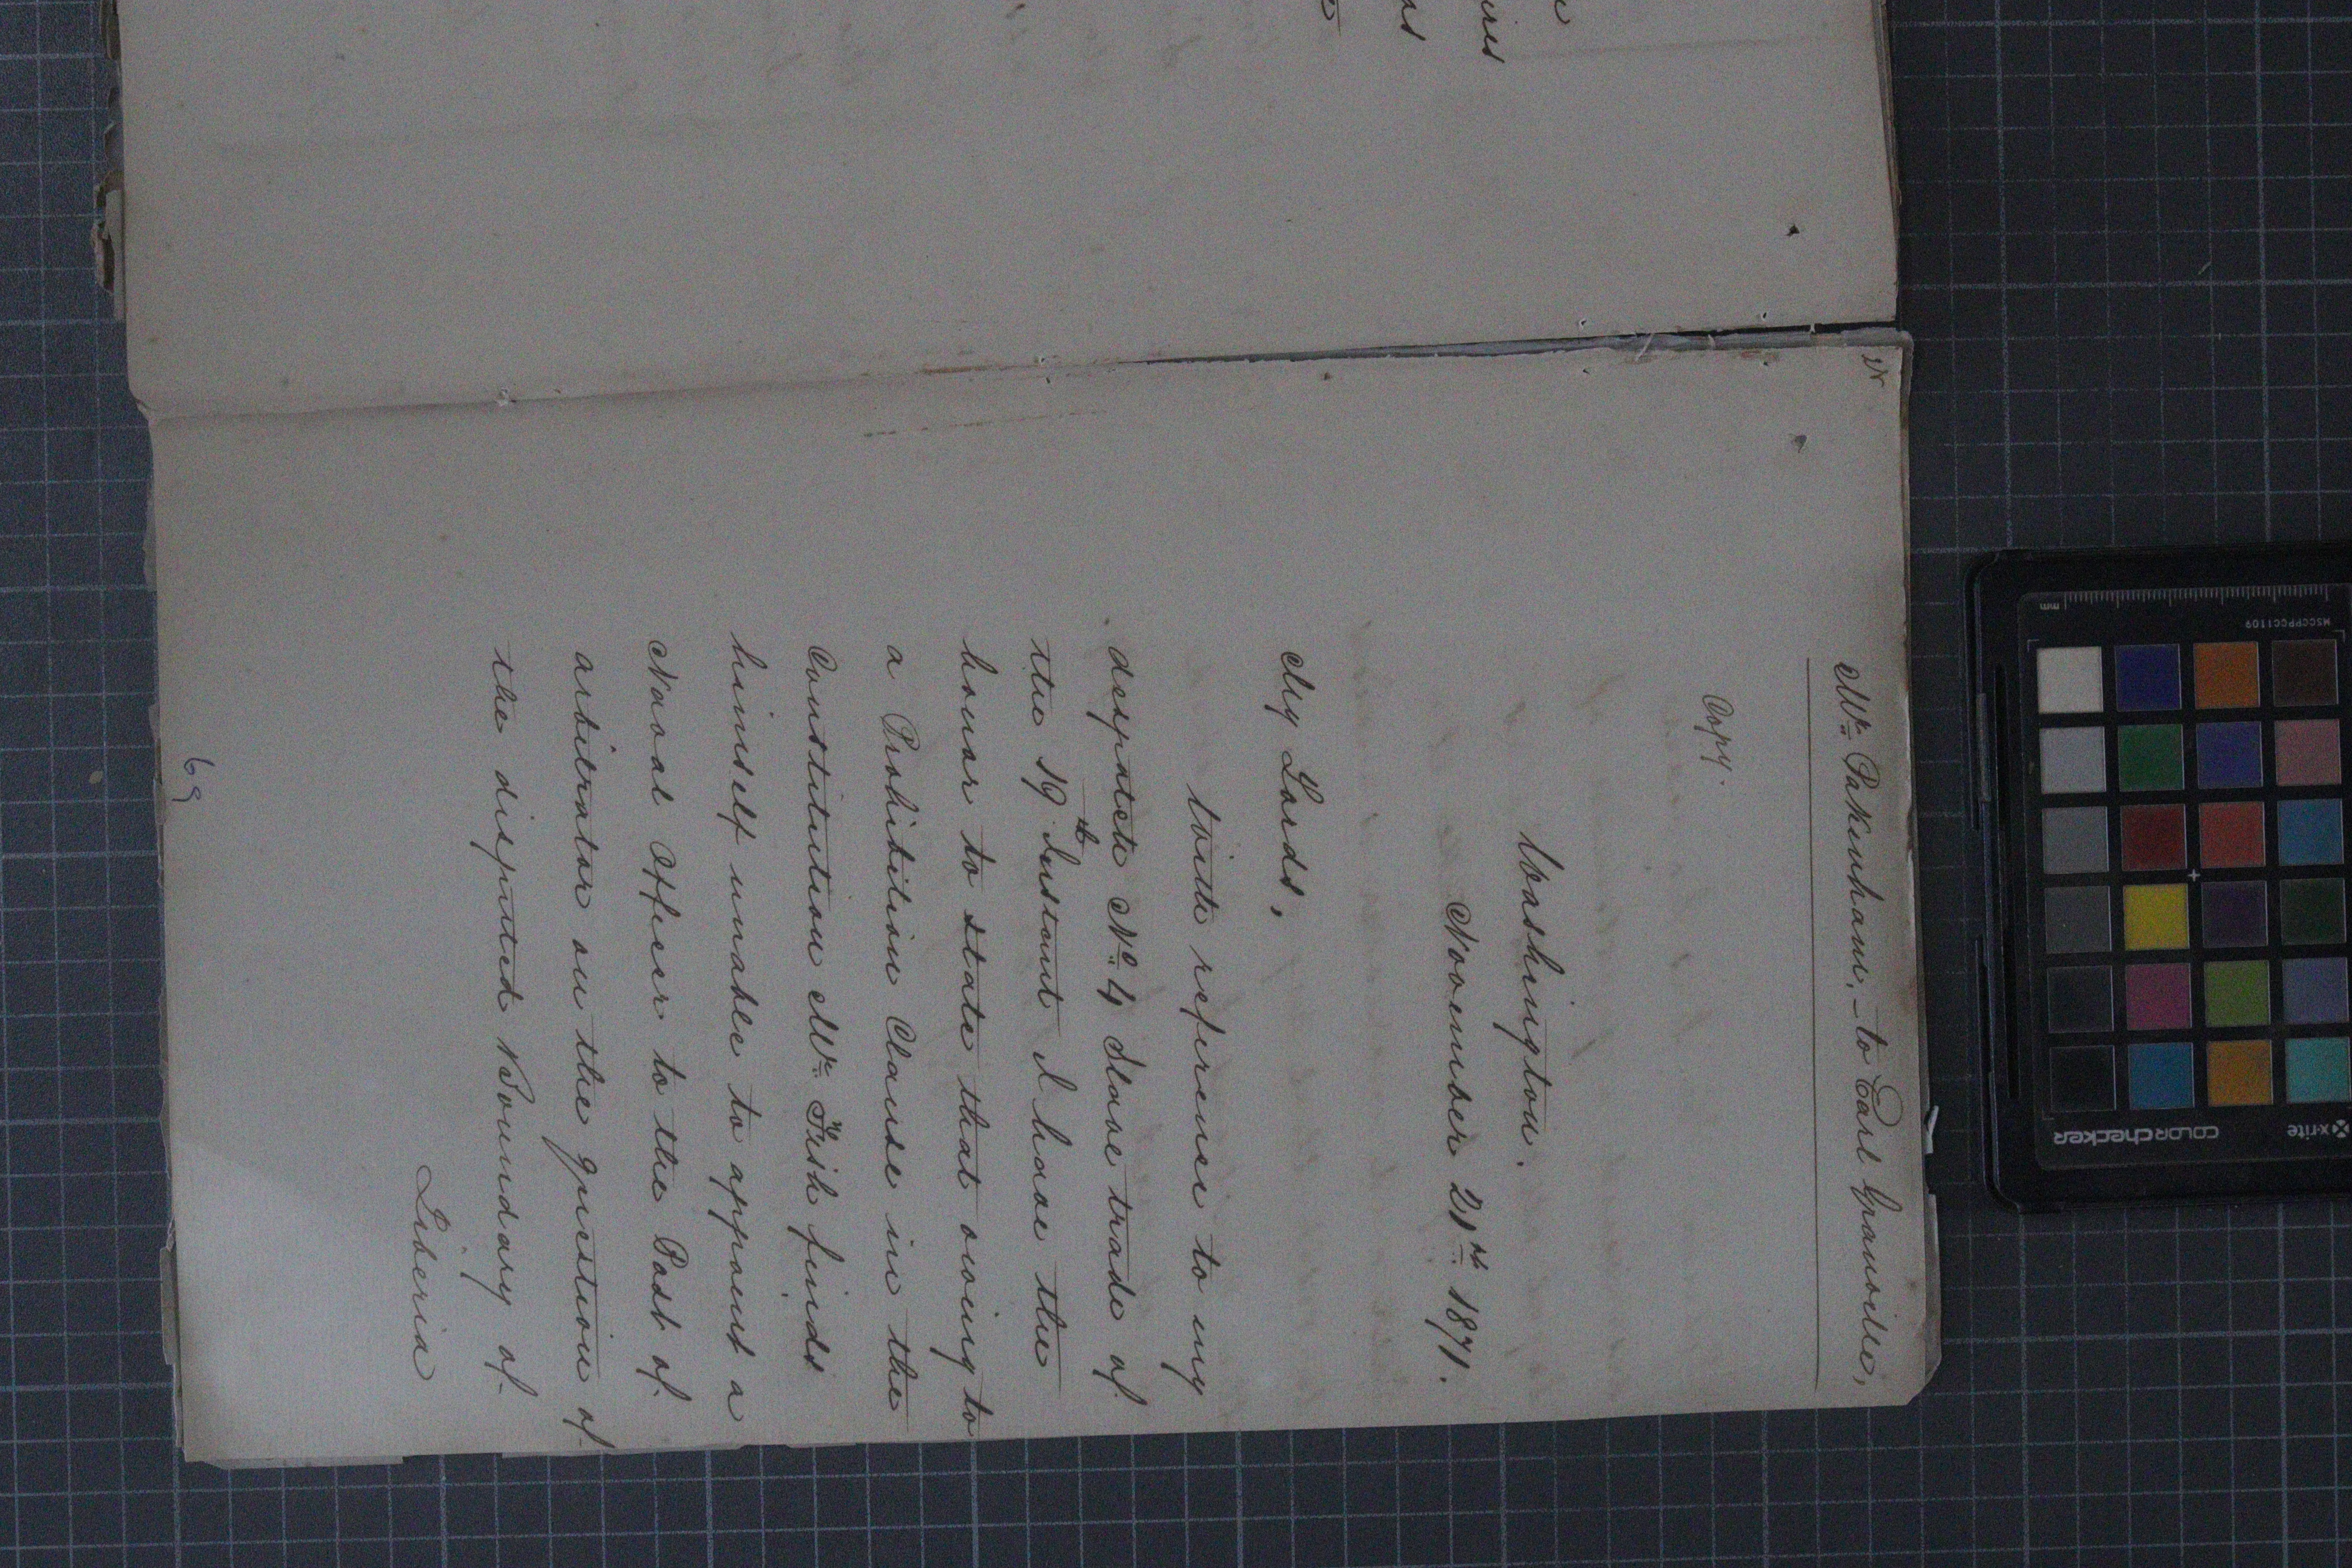 Mr. Pakenham, - to Earl Granville,
Copy.
Washington.
November 21st 1871.
My Lords,
With reference to my
despatch No. 4 Slave trade of
the 19th Instant I have the
honor to state that owing to
a Prohibition Clause in the
Constitution Mr. Fish finds
himself unable to appoint a
Naval Officer to the Post of
arbitrator on the question of
the disputed Boundary of
Liberia
69
MSCCPPCC1109
mm
x-rite
colorchecker